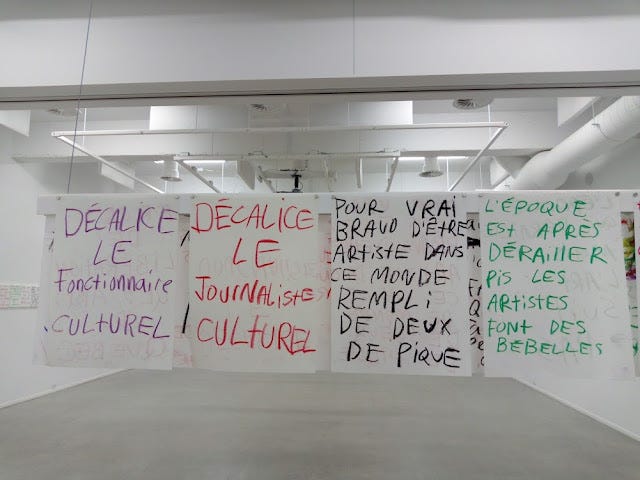 DÉCALICE
LE
Fonctionnaire
CULTUREL
DÉCALICE
LE
JOURNALISTE
CULTUREL
POUR VRAI
BRAVO D'ÊTRE
ARTISTE DANS
CE MONDE
REMPLI
DE DEUX
DE PIQUE
L'ÉPOQUE
EST APRÈS
DÉRAILLER
PIS LES
ARTISTES
FONT DES
BÉBELLES